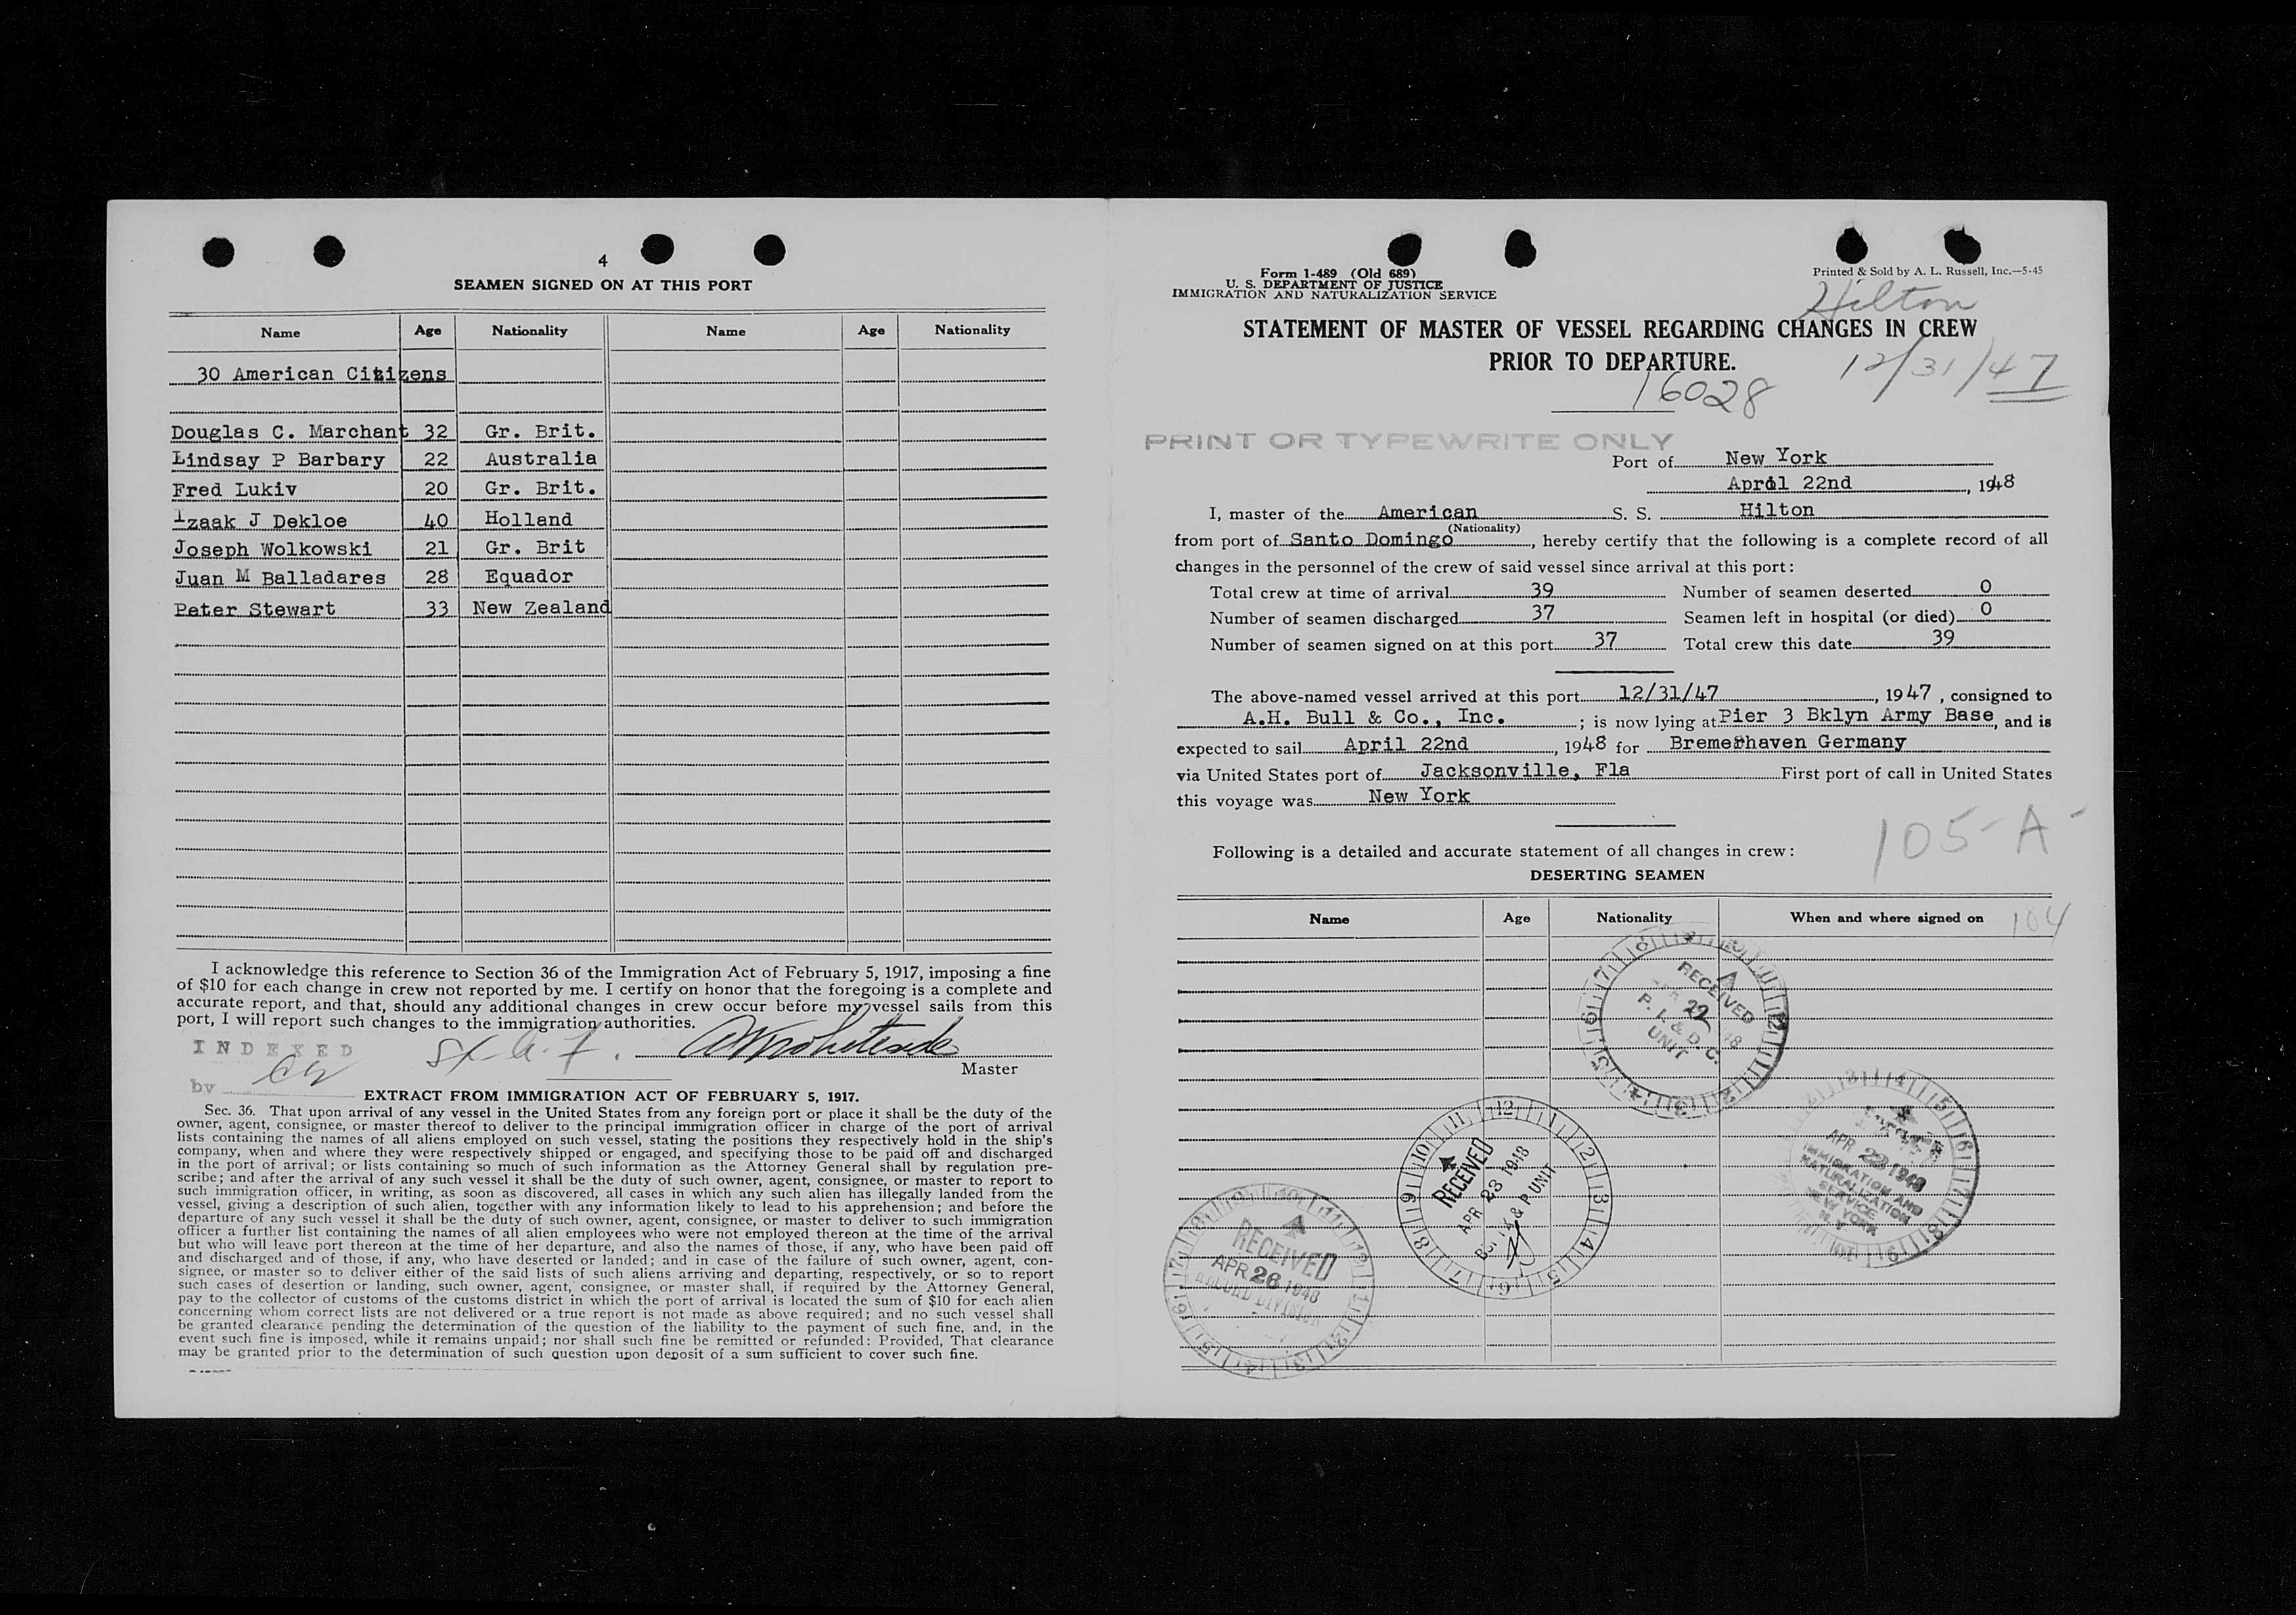 4
SEAMEN SIGNED ON AT THIS PORT
Name Age Nationality Name Age Nationality
30 American Citizens
Douglas C. Marchant 32 Gr. Brit.
Lindsay P Barbary 22 Australia
Fred Lukiv 20 Gr. Brit.
Izaak J Dekloe 40 Holland
Joseph Wolkowski 21 Gr. Brit
Juan M Balladares 28 Equador
Peter Stewart 33 New Zealand
I acknowledge this reference to Section 36 of the Immigration Act of February 5, 1917, imposing a fine
of $10 for each change in crew not reported by me. I certify on honor that the foregoing is a complete and
accurate report, and that, should any additional changes in crew occur before my vessel sails from this
port, I will report such changes to the immigration authorities.
INDEXED
by
Master
EXTRACT FROM IMMIGRATION ACT OF FEBRUARY 5, 1917.
Sec. 36. That upon arrival of any vessel in the United States from any foreign port or place it shall be the duty of the
owner, agent, consignee, or master thereof to deliver to the principal immigration officer in charge of the port of arrival
lists containing the names of all aliens employed on such vessel, stating the positions they respectively hold in the ship's
company, when and where they were respectively shipped or engaged, and specifying those to be paid off and discharged
in the port of arrival; or lists containing so much of such information as the Attorney General shall by regulation pre-
scribe; and after the arrival of any such vessel it shall be the duty of such owner, agent, consignee, or master to report to
such immigration officer, in writing, as soon as discovered, all cases in which any such alien has illegally landed from the
vessel, giving a description of such alien, together with any information likely to lead to his apprehension; and before the
departure of any such vessel it shall be the duty of such owner, agent, consignee, or master to deliver to such immigration
officer a further list containing the names of all alien employees who were not employed thereon at the time of the arrival
but who will leave port thereon at the time of her departure, and also the names of those, if any, who have been paid off
and discharged and of those, if any, who have deserted or landed; and in case of the failure of such owner, agent, con-
signee, or master so to deliver either of the said lists of such aliens arriving and departing, respectively, or so to report
such cases of desertion or landing, such owner, agent, consignee, or master shall, if required by the Attorney General,
pay to the collector of customs of the customs district in which the port of arrival is located the sum of $10 for each alien
concerning whom correct lists are not delivered or a true report is not made as above required; and no such vessel shall
be granted clearance pending the determination of the question of the liability to the payment of such fine, and, in the
event such fine is imposed, while it remains unpaid; nor shall such fine be remitted or refunded: Provided, That clearance
may be granted prior to the determination of such question upon deposit of a sum sufficient to cover such fine.
Form 1-489 (Old 689)
U. S. DEPARTMENT OF JUSTICE
IMMIGRATION AND NATURALIZATION SERVICE
Printed & Sold by A. L. Russell, Inc.—5-45
Hilton
STATEMENT OF MASTER OF VESSEL REGARDING CHANGES IN CREW
PRIOR TO DEPARTURE.
12/31/47
16028
PRINT OR TYPEWRITE ONLY
Port of New York
April 22nd, 1948
I, master of the American S. S. Hilton
(Nationality)
from port of Santo Domingo, hereby certify that the following is a complete record of all
changes in the personnel of the crew of said vessel since arrival at this port:
Total crew at time of arrival 39 Number of seamen deserted 0
Number of seamen discharged 37 Seamen left in hospital (or died) 0
Number of seamen signed on at this port 37 Total crew this date 39
The above-named vessel arrived at this port 12/31/47, 1947, consigned to
A.H. Bull & Co., Inc.; is now lying at Pier 3 Bklyn Army Base, and is
expected to sail April 22nd, 1948 for Bremerhaven Germany
via United States port of Jacksonville, Fla First port of call in United States
this voyage was New York
105-A-
Following is a detailed and accurate statement of all changes in crew:
DESERTING SEAMEN
Name Age Nationality When and where signed on
104
RECEIVED
22
P. I. & D. C.
UNIT
RECEIVED
APR 23 1948
& P UNIT
APR 22 1948
IMMIGRATION AND
NATURALIZATION
SERVICE
NEW YORK
N. Y.
RECEIVED
APR 26 1948
RECORD DIVISION